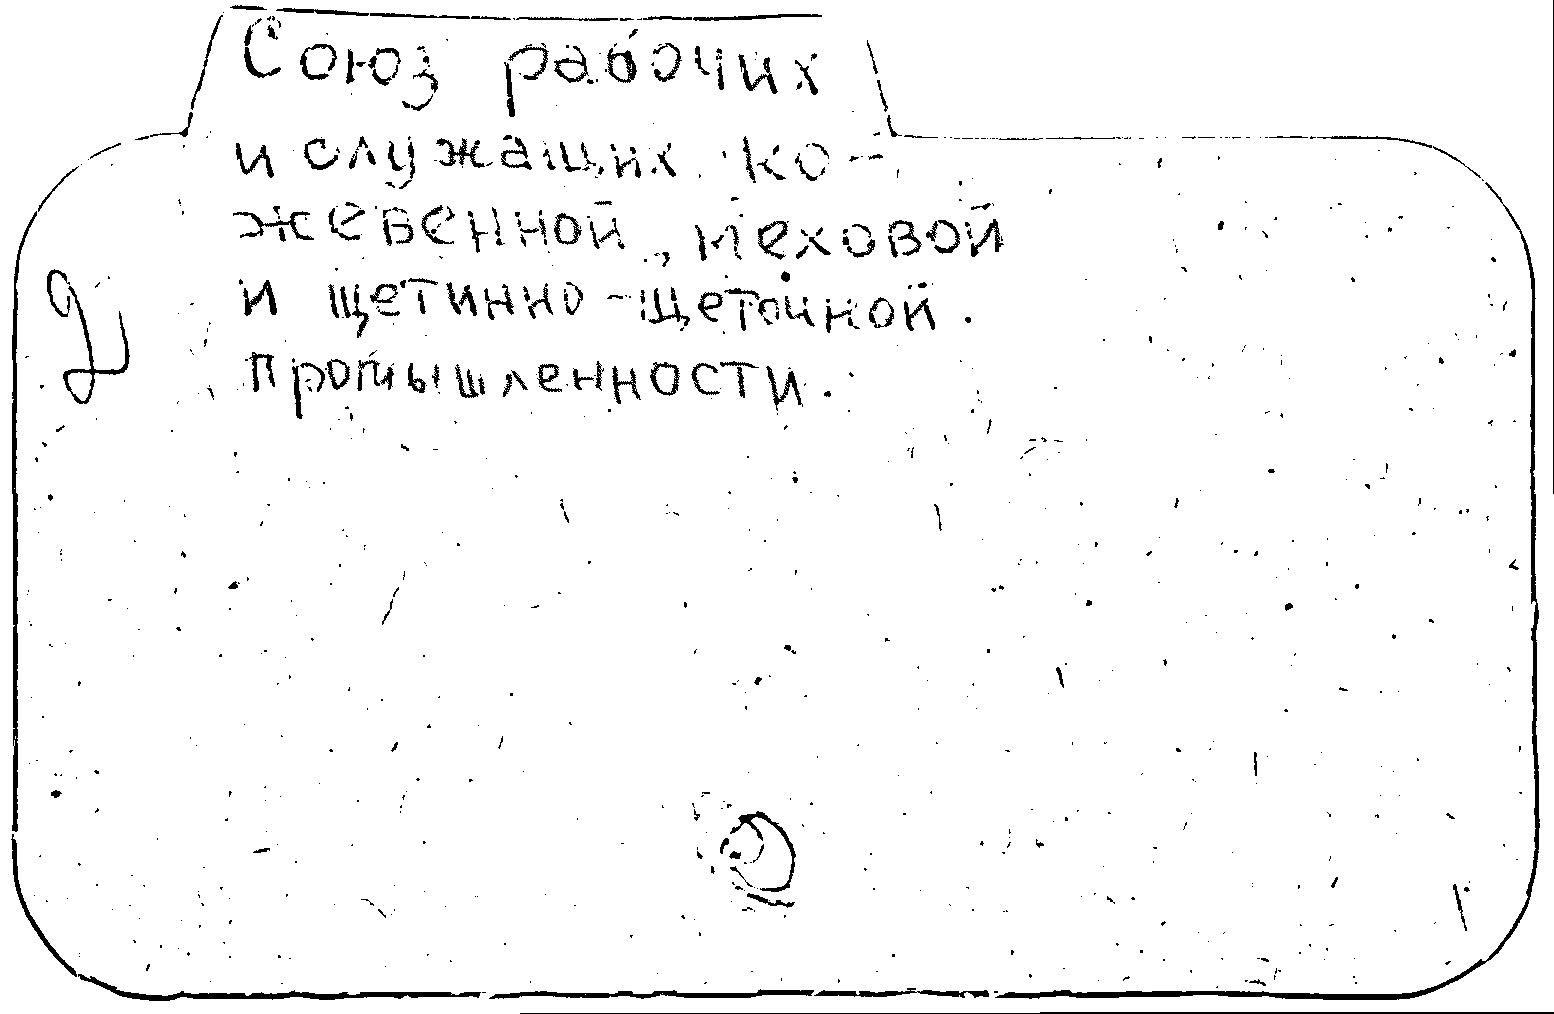 Союз рабочих
и служащих ко-
жевенной, меховой
и щетинно-щеточной.
промышленности.